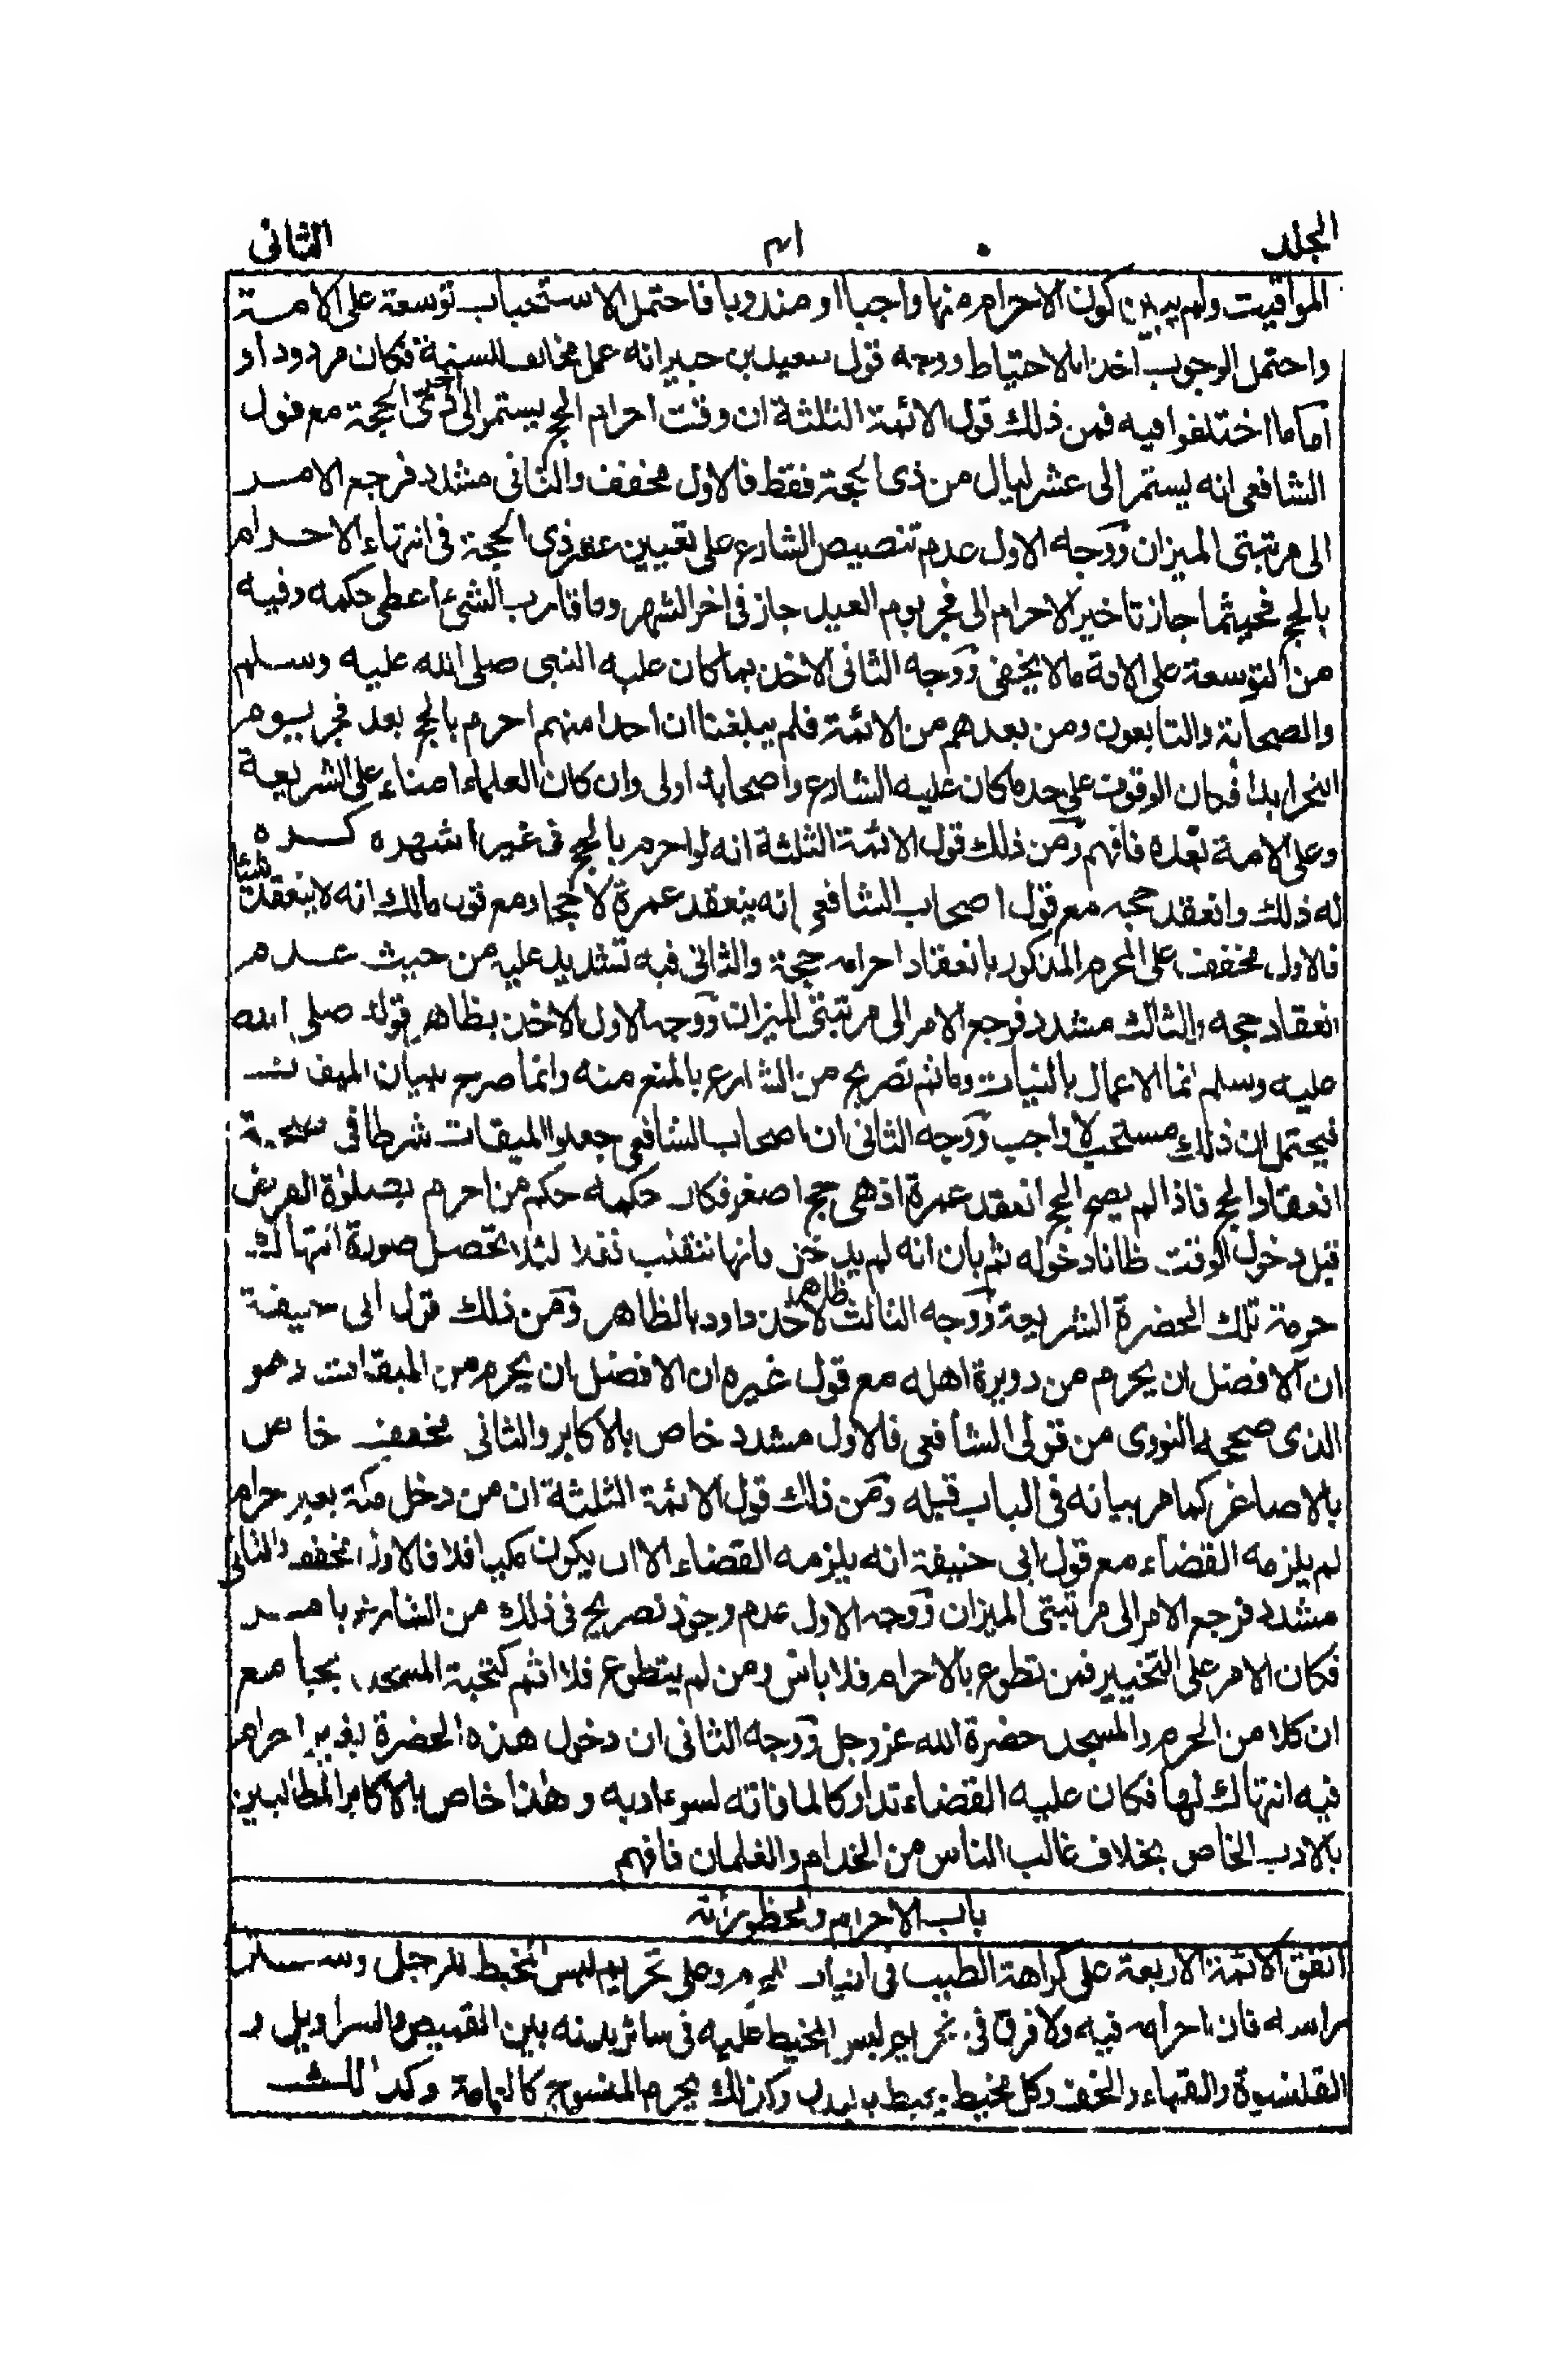 الجلد ٤١ الثانى
المواقيت ولم يبين كون الاحرام منها واجبا او مندوبا فاحتمل الاستحباب توسعة على الامة
واحتمل الوجوب اخذا بالاحتياط ووجه قول سعيد بن جبير انه عمل مخالف للسنة فكان مردودا و
اما ما اختلفوا فيه فمن ذلك قول الائمة الثلثة ان وقت احرام الحج يستمر الى اخر ذى الحجة مع قول
الشافعى انه يستمر الى عشر ليال من ذى الحجة فقط فالاول مخفف والثانى مشدد فرجع الامر
الى مرتبتى الميزان ووجه الاول عدم تنصيص الشارع على تعيين عشر ذى الحجة فى انتهاء الاحرام
بالحج فحيثما جاز تاخير الاحرام الى فجر يوم العيد جاز فى اخر الشهر وما قارب الشئ اعطى حكمه وفيه
من التوسعة على الامة ما لا يخفى ووجه الثانى الاخذ بما كان عليه النبى صلى الله عليه وسلم
والصحابة والتابعون ومن بعدهم من الائمة فلم يبلغنا ان احدا منهم احرم بالحج بعد فجر يوم
النحر ابدا فكان الوقوف على حد ما كان عليه الشارع واصحابه اولى وان كان العلماء امناء على الشريعة
وعلى الامة بعده فافهم ومن ذلك قول الائمة الثلثة انه لو احرم بالحج فى غير اشهره كره
له ذلك وانعقد حجه مع قول اصحاب الشافعى انه ينعقد عمرة لا حجا ومع قول مالك انه لا ينعقد شئا
فالاول مخفف على المحرم المذكور بانعقاد احرامه حجة والثانى فيه تشديد عليه من حيث عدم
انعقاد حجه والثالث مشدد فرجع الامر الى مرتبتى الميزان ووجه الاول الاخذ بظاهر قوله صلى الله
عليه وسلم انما الاعمال بالنيات وما ثم تصريح من الشارع بالمنع منه وانما صرح ببيان الميقات
فيحتمل ان ذلك مستحب لا واجب ووجه الثانى ان اصحاب الشافعى جعلوا الميقات شرطا فى صحة
انعقاد الحج فاذا لم يصح الحج انعقد عمرة اذ هى حج اصغر فكان حكمه حكم من احرم بصلوة الفرض
قبل دخول الوقت ظانا دخوله ثم بان انه لم يدخل فانها تنقلب نفلا لئلا تحصل صورة انتهاك
حرمة تلك الحضرة الشريفة ووجه الثالث ظاهر لاخذ داود بالظاهر ومن ذلك قول ابى حنيفة
ان الافضل ان يحرم من دويرة اهله مع قول غيره ان الافضل ان يحرم من الميقات وهو
الذى صححه النووى من قولى الشافعى فالاول مشدد خاص بالاكابر والثانى مخفف خاص
بالاصاغر كما مر بيانه فى الباب قبله ومن ذلك قول الائمة الثلثة ان من دخل مكة بغير احرام
لم يلزمه القضاء مع قول ابى حنيفة انه يلزمه القضاء الا ان يكون مكيا فلا فالاول مخفف والثانى
مشدد فرجع الامر الى مرتبتى الميزان ووجه الاول عدم وجود تصريح فى ذلك من الشارع بامر
فكان الامر على التخيير فمن تطوع بالاحرام فلا باس ومن لم يتطوع فلا اثم كتحية المسجد بجامع
ان كلا من الحرم والمسجد حضرة الله عز وجل ووجه الثانى ان دخول هذه الحضرة بغير احرام
فيه انتهاك لها فكان عليه القضاء تداركا لما فاته لسوء ادبه وهذا خاص بالاكابر المطالبين
بالادب الخاص بخلاف غالب الناس من الخدام والغلمان فافهم
باب الاحرام ومحظوراته
اتفق الائمة الاربعة على كراهة الطيب فى الثياب للمحرم وعلى تحريم لبس المخيط للرجل وستر
راسه فان احرامه فيه ولا فرق فى تحريم لبس المخيط عليه فى سائر بدنه بين القميص والسراويل و
القلنسوة والقباء والخف وكل مخيط يحيط بالبدن وكذلك يحرم المنسوج وكذلك